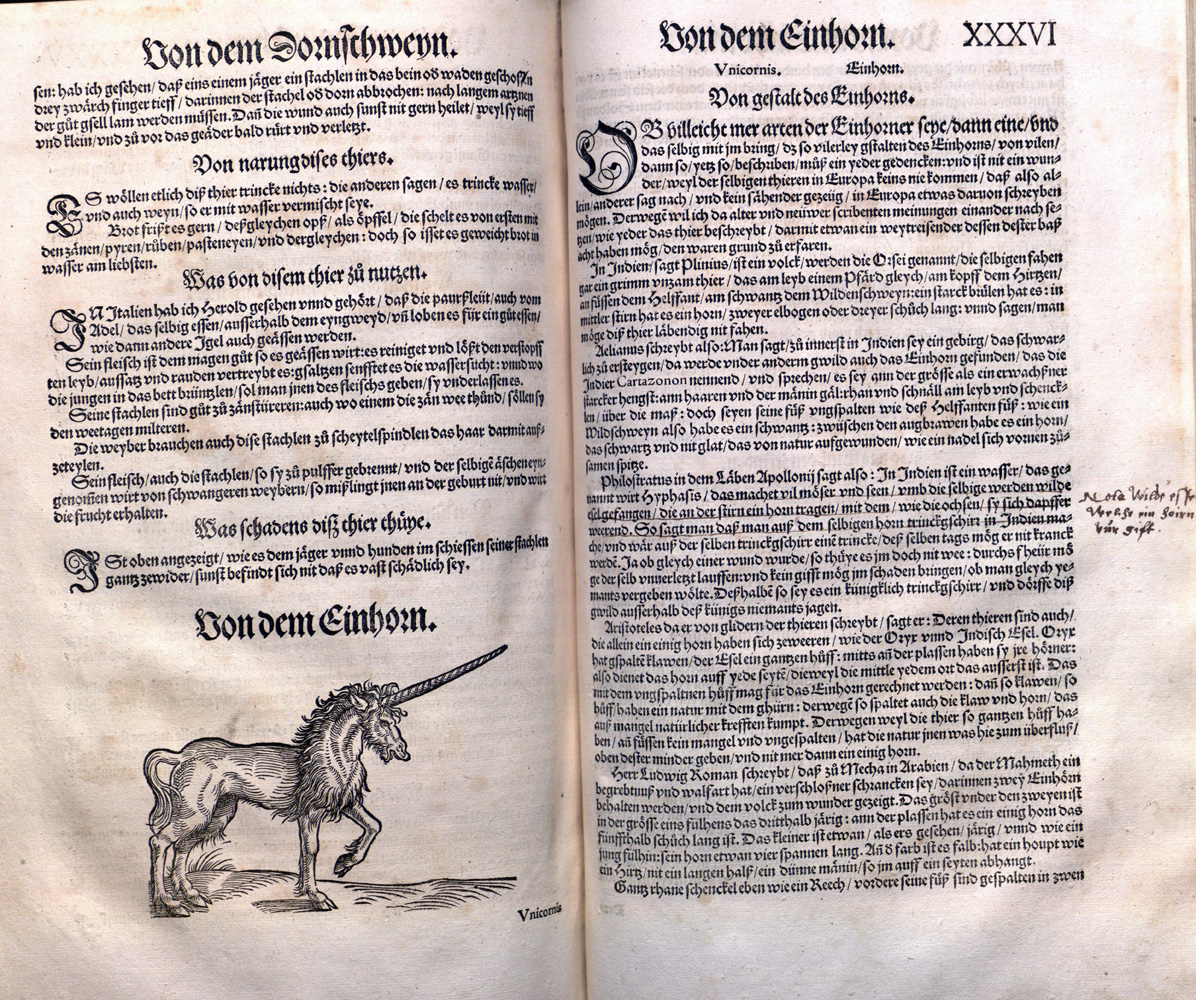 Von dem Dornschweyn.
sen: hab ich gesehen/ daß eins einem jäger ein stachlen in das bein od waden geschossen
drey zwärch finger tieff/ darinnen der stachel od dorn abbrochen: nach langem artznen
der gůt gsell lam werden müssen. Dañ die wund auch sunst nit gern heilet/ weyl sy tieff
vnd klein/ vnd zů vor das geäder bald rürt vnd verletzt.
Von narung dises thiers.
ES wöllen etlich diß thier trincke nichts: die anderen sagen/ es trincke wasser/
vnd auch weyn/ so er mit wasser vermischt seye.
Brot frißt es gern/ deßgleychen opß/ als öpffel/ die schelt es von ersten mit
den zänen/ pyren/ rüben/ pasteneyen/ vnd dergleychen: doch so isset es geweicht brot in
wasser am liebsten.
Was von disem thier zů nutzen.
IN Italien hab ich Herold gesehen vnnd gehört/ daß die paurßleüt/ auch vom
Adel/ das selbig essen/ ausserhalb dem eyngweyd/ vñ loben es für ein gůt essen/
wie dann andere Igel auch geässen werden.
Sein fleisch ist dem magen gůt so es geässen wirt: es reiniget vnd lößt den verstopff
ten leyb/ aussatz vnd rauden vertreybt es: gsaltzen senfftet es die wassersucht: vnnd wo
die jungen in das bett brüntzlen/ sol man jnen des fleischs geben/ sy vnderlassen es.
Seine stachlen sind gůt zů zänstüreren: auch wo einem die zän wee thůnd/ söllen sy
den weetagen milteren.
Die weyber brauchen auch dise stachlen zů scheytelspindlen das haar darmit auß-
zeteylen.
Sein fleisch/ auch die stachlen/ so sy zů pulffer gebrennt/ vnd der selbigẽ äschen eyn-
genommen wirt von schwangeren weybern/ so mißlingt jnen an der geburt nit/ vnd wirt
die frucht erhalten.
Was schadens diß thier thüye.
IST oben angezeigt/ wie es dem jäger vnnd hunden im schiessen seiner stachlen
gantz zewider/ sunst befindt sich nit daß es vast schädlich sey.
Von dem Einhorn.
Vnicornis
Von dem Einhorn. XXXVI
Vnicornis. Einhorn.
Von gestalt des Einhorns.
OB villeicht mer arten der Einhorner seye/ dann eine/ vnd
das selbig mit jm bring/ dz so vilerley gstalten des Einhorns/ von vilen/
dann so/ yetz so/ beschriben/ můß ein yeder gedencken: vnd ist nit ein wun-
der/ weyl der selbigen thieren in Europa keins nie kommen/ daß also al-
lein/ anderer sag nach/ vnd kein sähender gezeüg/ in Europa etwas daruon schreyben
mögen. Derwegẽ wil ich da alter vnd neüwer scribenten meinungen einander nach se-
tzen/ wie yeder das thier beschreybt/ darmit etwan ein weytreisender dessen dester baß
acht haben mög/ den waren grund zů erfaren.
In Indien/ sagt Plinius/ ist ein volck/ werden die Orsei genannt/ die selbigen fahen
gar ein grimm vnzam thier/ das am leyb einem Pfärd gleych/ am kopff dem Hirtzen/
an füssen dem Helffant/ am schwantz dem Wildenschweyn: ein starck brülen hat es: in
mittler stirn hat es ein horn/ zweyer elbogen oder dreyer schůch lang: vnnd sagen/ man
möge diß thier läbendig nit fahen.
Aelianus schreybt also: Man sagt/ zů innerst in Indien sey ein gebirg/ das schwar-
lich zů ersteygen/ da werde vnder anderm gwild auch das Einhorn gefunden/ das die
Indier Cartazonon nennend/ vnd sprechen/ es sey ann der grösse als ein erwachßner
starcker hengst: ann haaren vnd der mänin gäl: rhan vnd schnäll am leyb vnd schenck-
len/ über die maß: doch seyen seine füß vngspalten wie deß Helffanten füß: wie ein
Wildschweyn also habe es ein schwantz: zwüschen den augbrawen habe es ein horn/
das schwartz vnd nit glat/ das von natur aufgewunden/ wie ein nadel sich vornen zů-
samen spitze.
Philostratus in dem Läben Apollonij sagt also: In Indien ist ein wasser/ das ge-
nannt wirt Hyphasis/ das machet vil möser vnd seen/ vmb die selbige werden wilde
esel gefangen/ die an der stirn ein horn tragen/ mit dem/ wie die ochsen/ sy sich dapffer
weerend. So sagt man daß man auß dem selbigen horn trinckgschirr in Indien ma-
che/ vnd wär auß der selben trinckgschirr einẽ trincke/ deß selben tags mög er nit kranck
werdẽ. Ja ob gleych einer wund wurde/ so thüye es jm doch nit wee: durchs fheür mö
ge der selb vnuerletzt lauffen: vnd kein gifft mög jm schaden bringen/ ob man gleych ye-
mants vergeben wölte. Deßhalbẽ so sey es ein künigklich trinckgschirr/ vnd dörffe diß
gwild ausserhalb deß künigs niemants jagen.
Aristoteles da er von glideren der thieren schreybt/ sagt er: Deren thieren sind auch/
die allein ein einig horn haben sich zeweeren/ wie der Oryx vnnd Indisch Esel. Oryx
hat gspaltẽ klawen/ der Esel ein gantzen hůff: mitts añ der plassen haben sy jre hörner:
also dienet das horn auff yede seytẽ/ dieweyl die mittle yedem ort das ausserst ist. Das
mit dem vngspaltnen hůff mag für das Einhorn gerechnet werden: dañ so klawen/ so
hůff haben ein natur mit dem ghürn: derwegẽ so spaltet auch die klaw vnd horn/ das
auß mangel natürlicher krefften kumpt. Derwegen weyl die thier so gantzen hůff ha-
ben/ añ füssen kein mangel vnd vngespalten/ hat die natur jnen was hie zum überfluß/
oben dester minder geben/ vnd nit mer dann ein einig horn.
Herr Ludwig Roman schreybt/ daß zů Mecha in Arabien/ da der Mahmeth ein
begrebtnuß vnd walfart hat/ ein verschloßner schrancken sey/ darinnen zwey Einhörn
behalten werden/ vnd dem volck zum wunder gezeigt. Das gröst vnder den zweyen ist
in der grösse eins fülhens das dritthalb järig: ann der plassen hat es ein einig horn das
fünffthalb schůch lang ist. Das kleiner ist etwan/ als ers gesehen/ järig/ vnnd wie ein
jung fülhin: sein horn etwan vier spannen lang. An d farb ist es falb: hat ein houpt wie
ein Hirtz/ nit ein langen halß/ ein dünne mänin/ so jm auff ein seyten abhangt.
Gantz rhane schenckel eben wie ein Reech/ vordere seine füß sind gespalten in zwen
Nota Wilde esel
ein horn
vür gift.